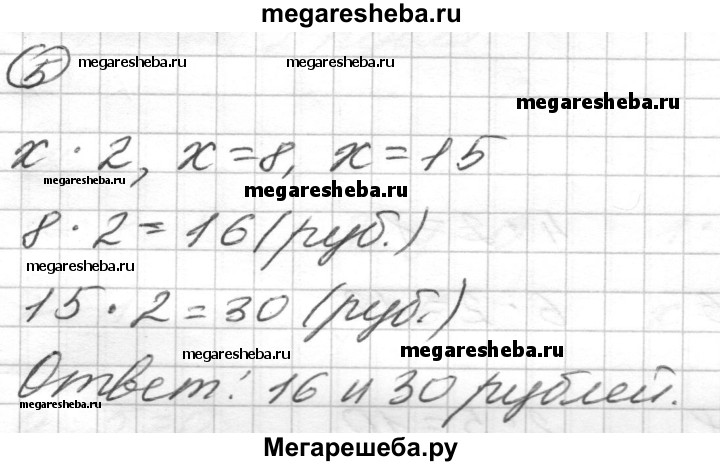 megaresheba.ru
5 megaresheba.ru megaresheba.ru
megaresheba.ru
x · 2, x = 8, x = 15
megaresheba.ru megaresheba.ru
8 · 2 = 16 (руб.)
megaresheba.ru
15 · 2 = 30 (руб.)
megaresheba.ru megaresheba.ru
Ответ: 16 и 30 рублей.
megaresheba.ru
Мегарешеба.ру